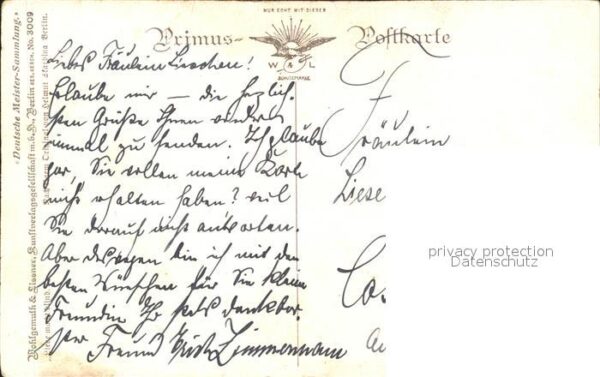 NUR ECHT MIT DIESER
Primus-Postkarte
W & L
SCHUTZMARKE
Liebes Fräulein Lieschen!
Erlaube mir — die herzlich-
sten Grüße Ihnen wieder
einmal zu senden. Ich glaube
gar, Sie sollen meine Karte
nicht erhalten haben? weil
Sie darauf nicht antworten.
Aber deswegen bin ich mit den
besten Wünschen für Sie kleine
Freundin Ihr stets dankbar-
ster Freund Erich Zimmermann
Fräulein
Liese
privacy protection
Datenschutz
Co.
„Deutsche Meister-Sammlung."
Wohlgemuth & Lissner, Kunstverlagsgesellschaft m.b.H., Berlin No. 3009